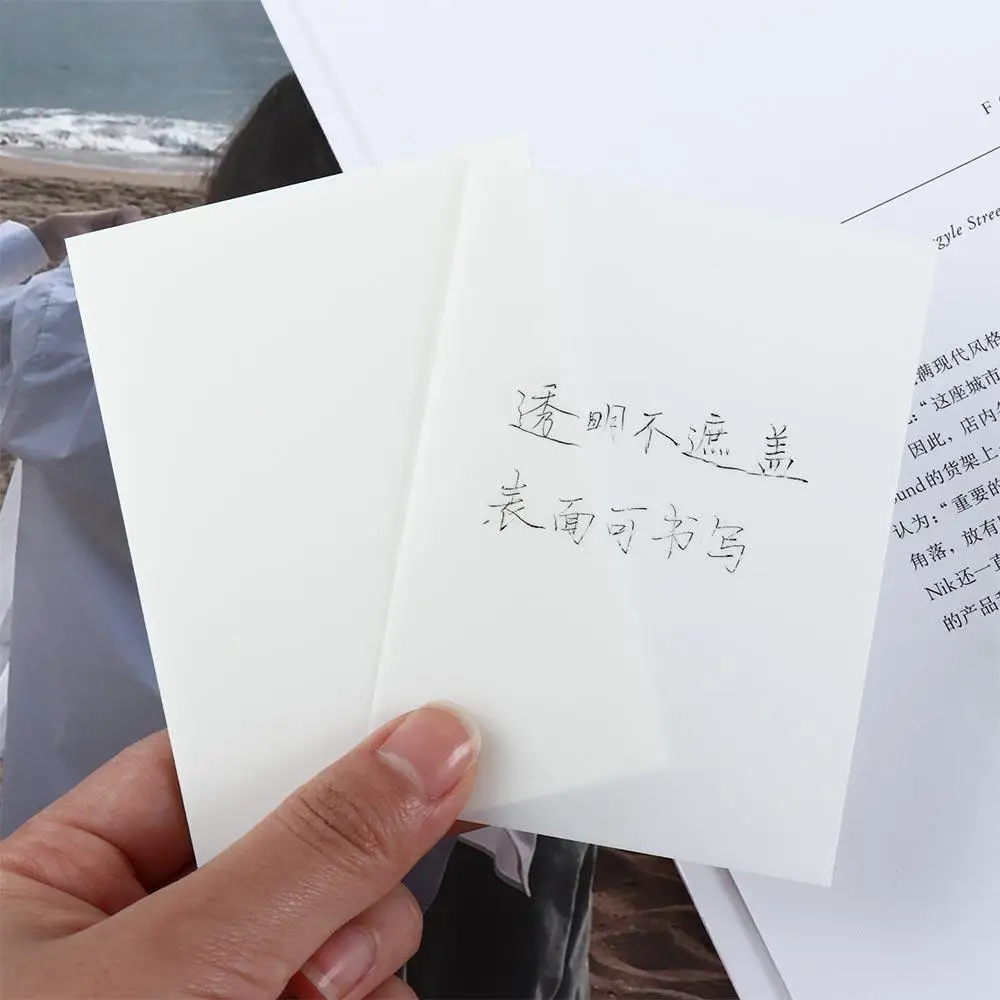 透明不遮盖
表面可书写
gyle Stree
满现代风格
：“这座城市
因此，店内
und的货架上
认为：“重要的
角落，放有
Nik还一直
的产品